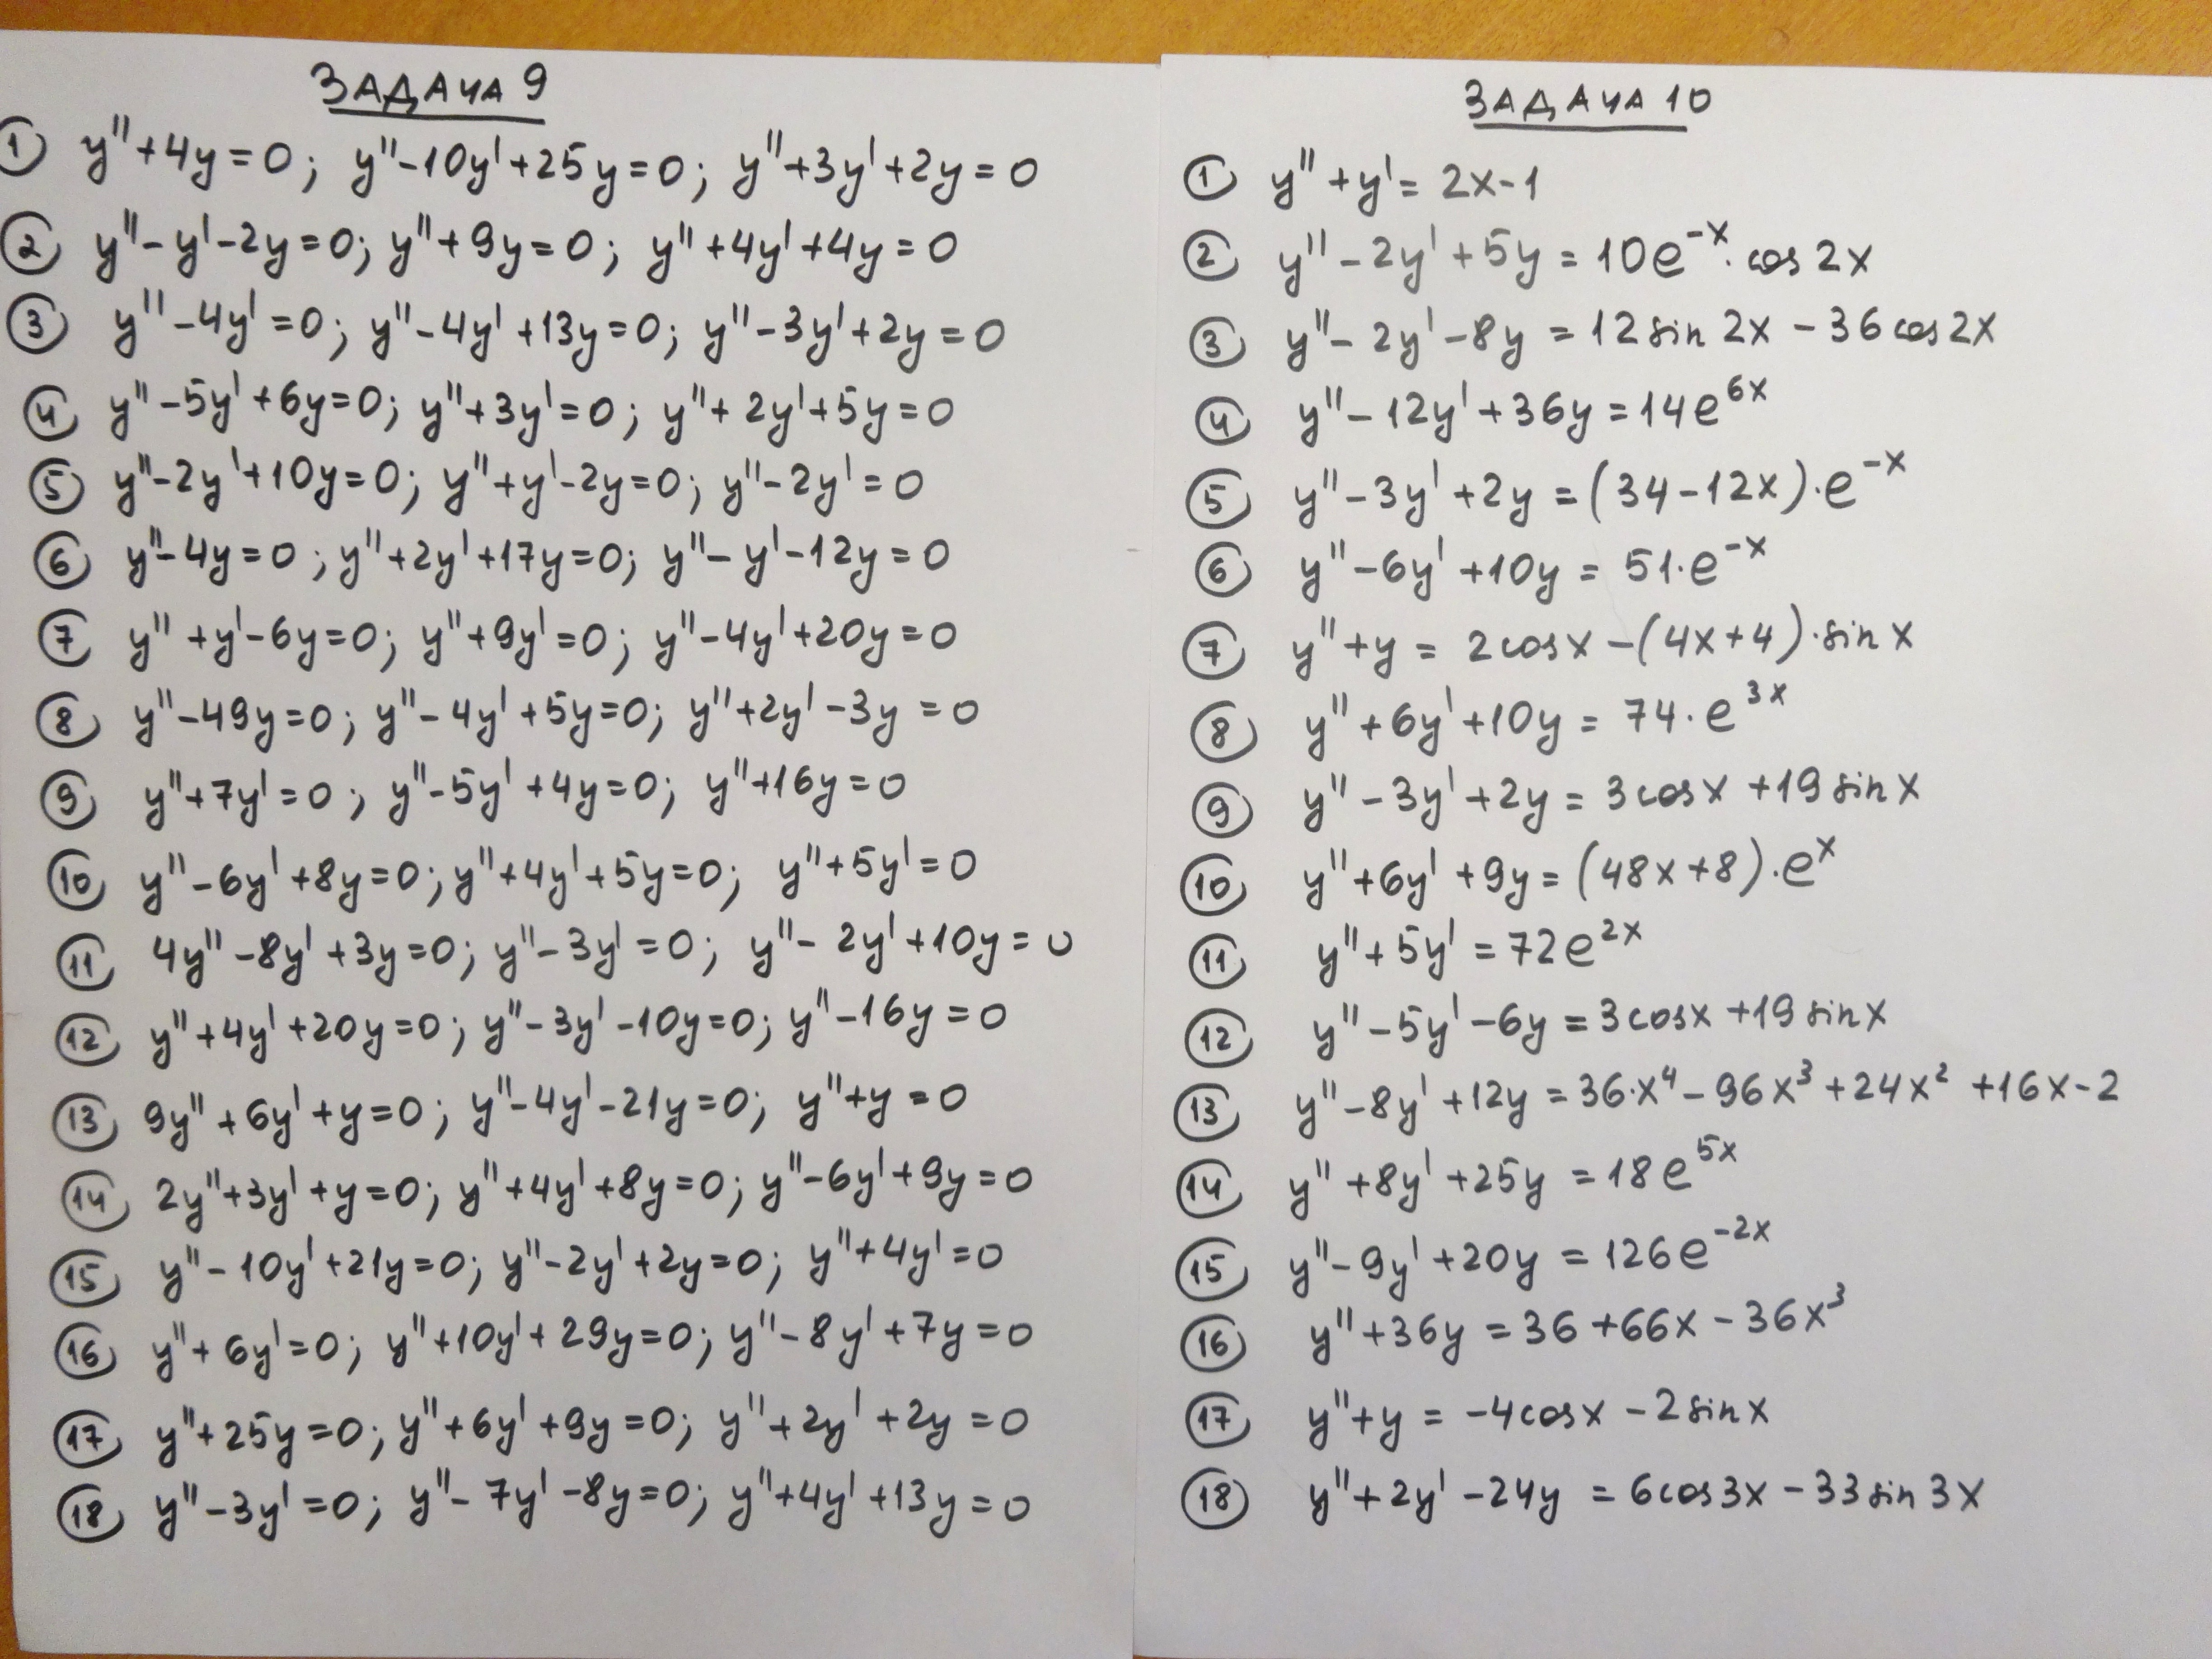 ЗАДАЧА 9
① y''+4y=0; y''-10y'+25y=0; y''+3y'+2y=0
② y''-y'-2y=0; y''+9y=0; y''+4y'+4y=0
③ y''-4y'=0; y''-4y'+13y=0; y''-3y'+2y=0
④ y''-5y'+6y=0; y''+3y'=0; y''+2y'+5y=0
⑤ y''-2y'+10y=0; y''+y'-2y=0; y''-2y'=0
⑥ y''-4y=0; y''+2y'+17y=0; y''-y'-12y=0
⑦ y''+y'-6y=0; y''+9y'=0; y''-4y'+20y=0
⑧ y''-49y=0; y''-4y'+5y=0; y''+2y'-3y=0
⑨ y''+7y'=0; y''-5y'+4y=0; y''+16y=0
⑩ y''-6y'+8y=0; y''+4y'+5y=0; y''+5y'=0
⑪ 4y''-8y'+3y=0; y''-3y'=0; y''-2y'+10y=0
⑫ y''+4y'+20y=0; y''-3y'-10y=0; y''-16y=0
⑬ 9y''+6y'+y=0; y''-4y'-21y=0; y''+y=0
⑭ 2y''+3y'+y=0; y''+4y'+8y=0; y''-6y'+9y=0
⑮ y''-10y'+21y=0; y''-2y'+2y=0; y''+4y'=0
⑯ y''+6y'=0; y''+10y'+29y=0; y''-8y'+7y=0
⑰ y''+25y=0; y''+6y'+9y=0; y''+2y'+2y=0
⑱ y''-3y'=0; y''-7y'-8y=0; y''+4y'+13y=0
ЗАДАЧА 10
① y''+y'=2x-1
② y''-2y'+5y=10e^{-x}·cos2x
③ y''-2y'-8y=12sin2x-36cos2x
④ y''-12y'+36y=14e^{6x}
⑤ y''-3y'+2y=(34-12x)·e^{-x}
⑥ y''-6y'+10y=51·e^{-x}
⑦ y''+y=2cosx-(4x+4)·sinx
⑧ y''+6y'+10y=74·e^{3x}
⑨ y''-3y'+2y=3cosx+19sinx
⑩ y''+6y'+9y=(48x+8)·e^{x}
⑪ y''+5y'=72e^{2x}
⑫ y''-5y'-6y=3cosx+19sinx
⑬ y''-8y'+12y=36·x⁴-96x³+24x²+16x-2
⑭ y''+8y'+25y=18e^{5x}
⑮ y''-9y'+20y=126e^{-2x}
⑯ y''+36y=36+66x-36x³
⑰ y''+y=-4cosx-2sinx
⑱ y''+2y'-24y=6cos3x-33sin3x